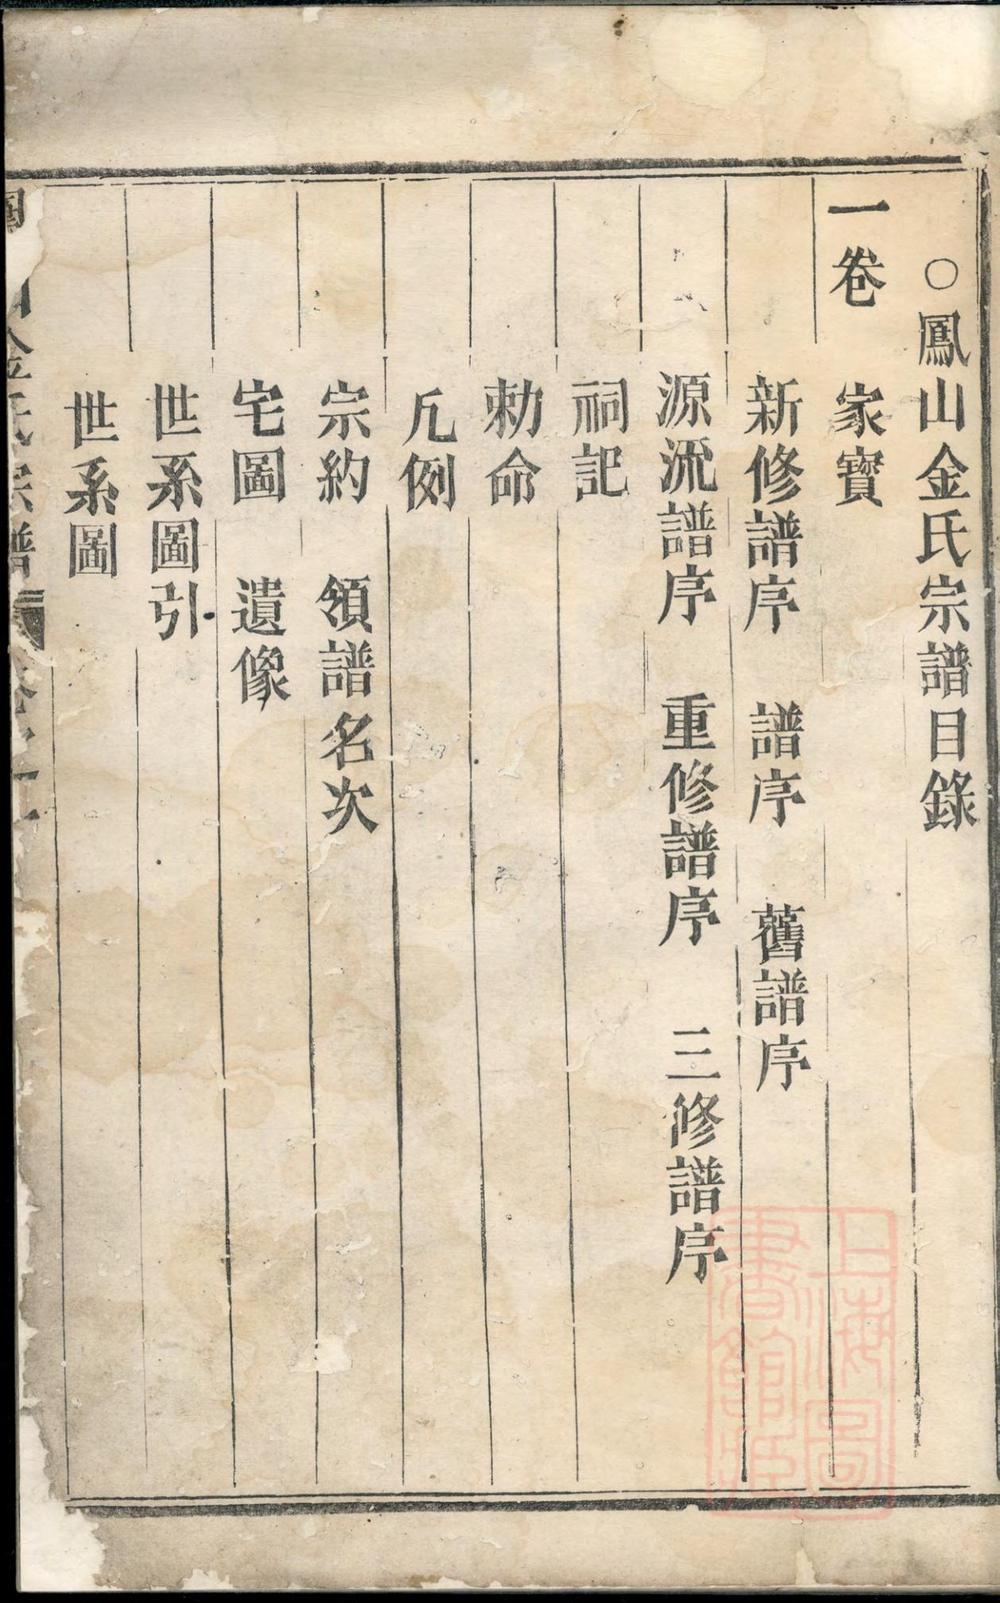 ○鳳山金氏宗譜目錄
一卷
家寶
新修譜序 譜序 舊譜序
源流譜序 重修譜序 三修譜序
祠記
勅命
凡例
宗約 領譜名次
宅圖 遺像
世系圖引
世系圖
金氏宗譜
上海圖書館藏